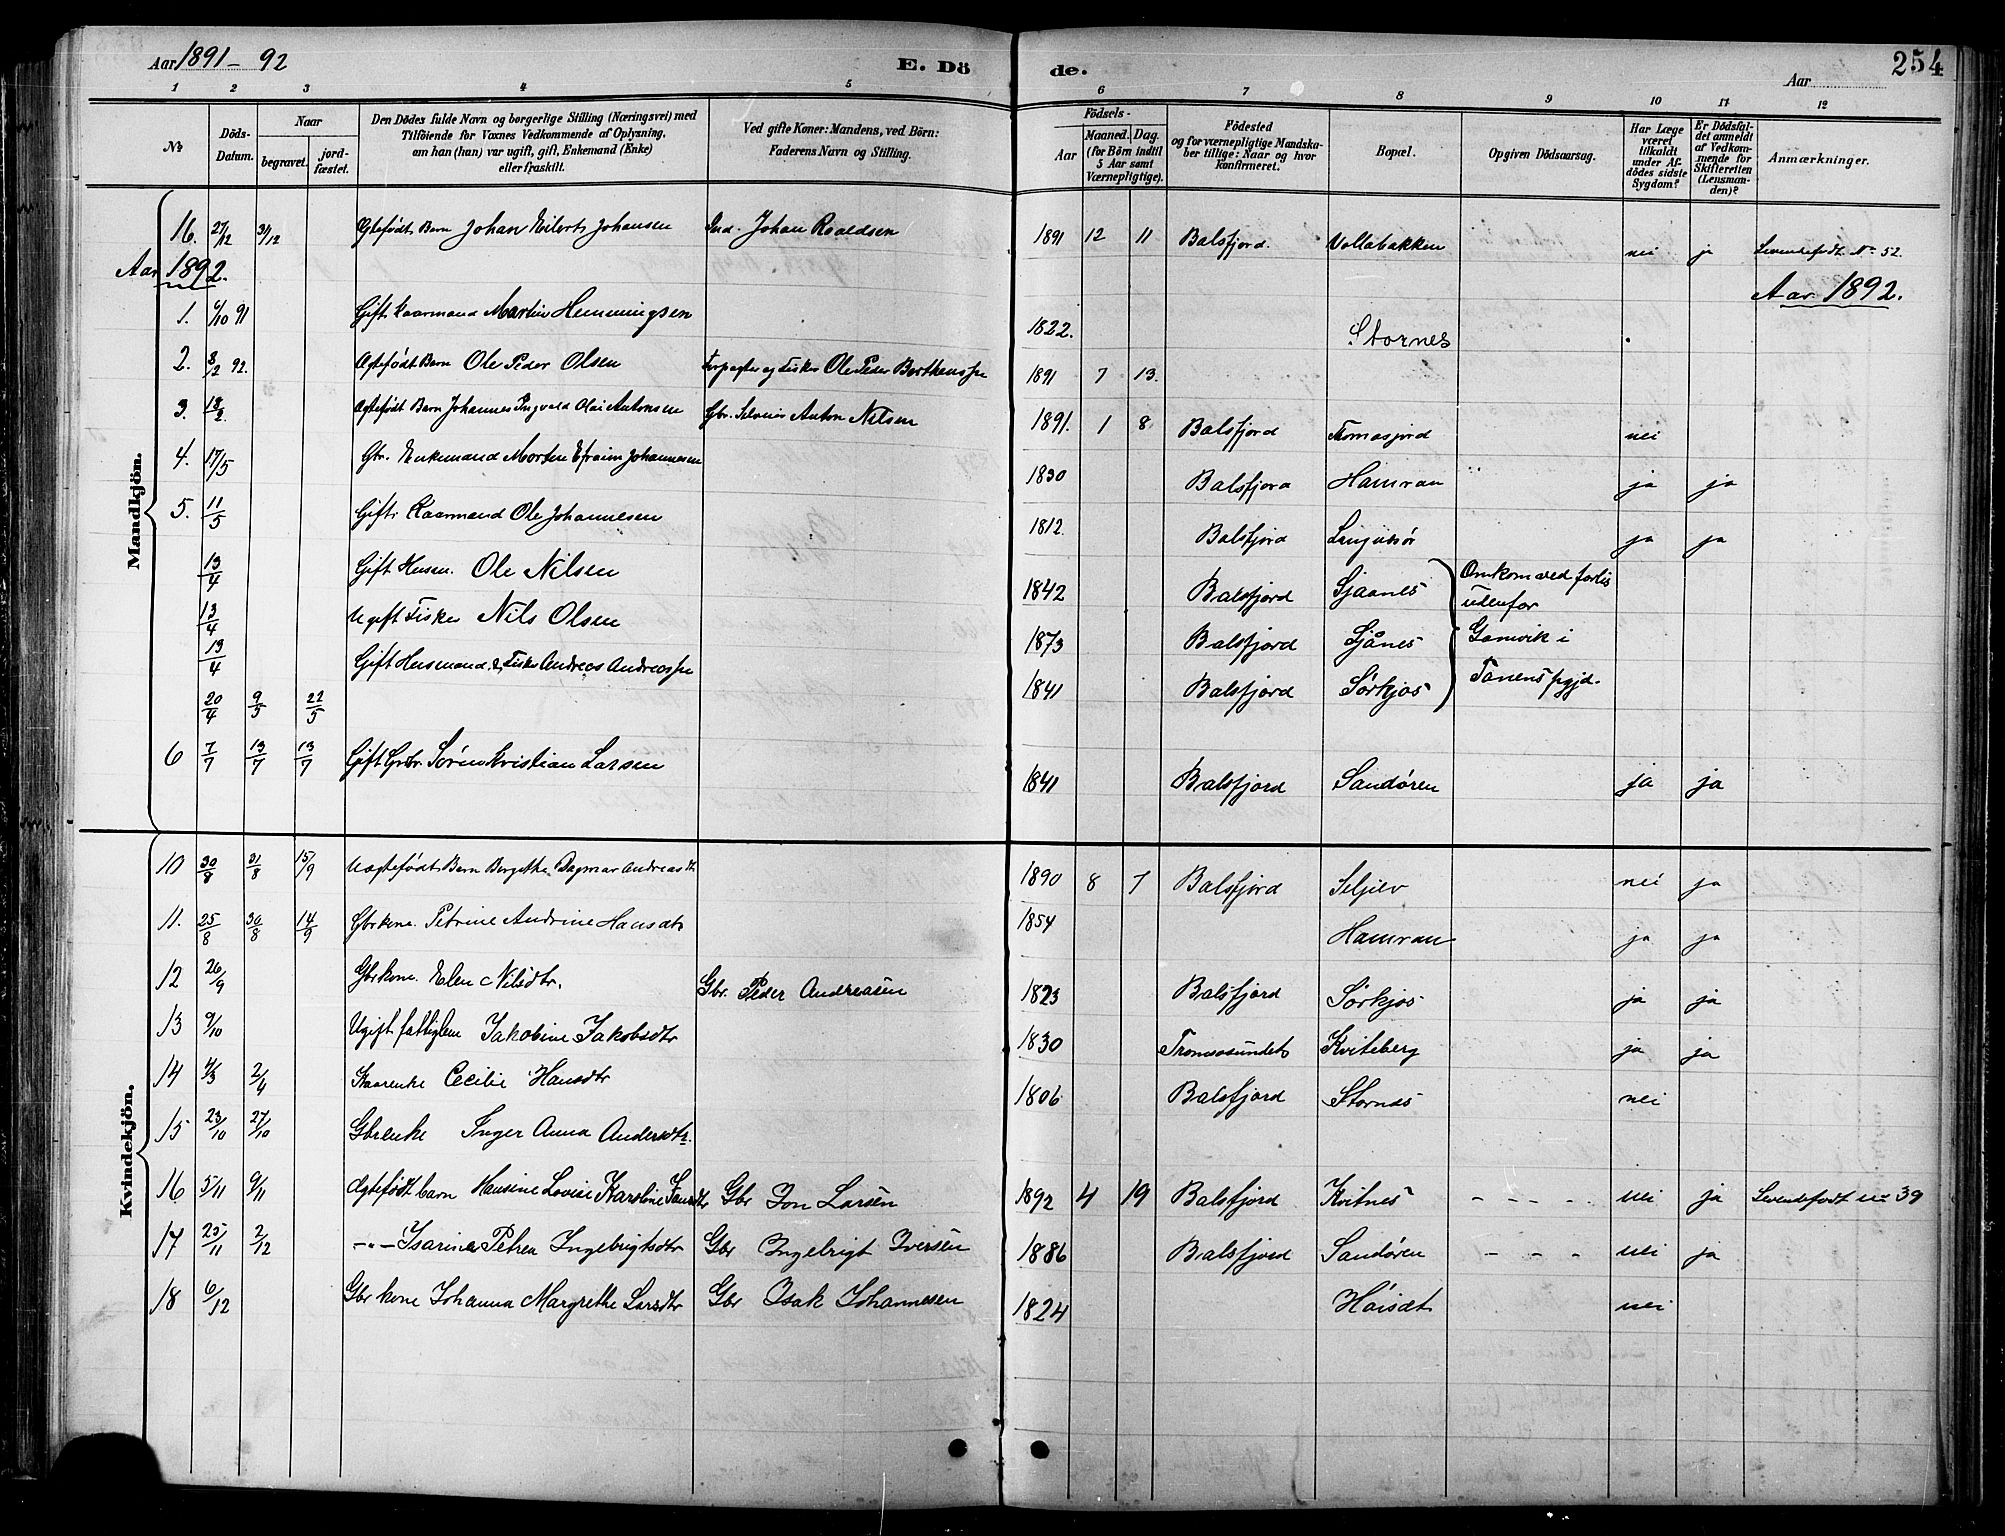 Aar 1891-92
E. Dö
de.
Aar
254
1 2 3 4 5 6 7 8 9 10 11 12
№
Döds-Datum.
Naar
begravet.
jord-fæstet.
Den Dödes fulde Navn og borgerlige Stilling (Næringsvei) med
Tilföiende for Voxnes Vedkommende af Oplysning,
om han (hun) var ugift, gift, Enkemand (Enke)
eller fraskilt.
Ved gifte Koner: Mandens, ved Börn:
Faderens Navn og Stilling.
Födsels-
Aar
Maaned.
Dag.
(for Börn indtil
5 Aar samt
Værnepligtige).
Födested
og for værnepligtige Mandska-
ber tillige: Naar og hvor
konfirmeret.
Bopæl.
Opgiven Dödsaarsag.
Har Læge
været
tilkaldt
under Af-
dödes sidste
Sygdom?
Er Dödsfal-
det anmeldt
af Vedkom-
mende for
Skifteretten
(Lensman-
den)?
Anmærkninger.
Mandkjön.
16. 27/12 31/12 Ægtefödt Barn Johan Eilert Johansen Ind. Johan Roaldsen 1891 12 11 Balsfjord. Vollabakken nei ja Levendefödt No 52.
Aar 1892. Aar 1892.
1. 6/10 91 Gift Kaarmand Martin Hemmingsen 1822. Stornes
2. 8/2 92. Ægtefödt Barn Ole Peder Olsen Forpagter og Fisker Ole Peder Berthenssen 1891 7 13.
3. 18/2. Ægtefödt Barn Johannes Ingvald Olai Antonsen Gbr. Anton Nilsen 1891. 1 8 Balsfjord Tomasjord nei
4. 17/5 Gbr. Enkemand Morten Efraim Johannesen 1830 Balsfjord Hamran ja ja
5. 11/5 Gift Kaarmand Ole Johannesen 1812. Balsfjord ja ja
13/4 Gift Husm. Ole Nilsen 1842 Balsfjord Sjaanes Omkom ved forlis
13/4 Ugift Fisker Nils Olsen 1873 Balsfjord Sjånes udenfor
13/4 Gift Husmand & Fisker Andreas Andreassen 1841 Balsfjord Sørkjos Gamvik i
20/4 9/5 22/5 Tanens pgjd.
6 7/7 13/7 13/7 Gift Gbr. Søren Kristian Larsen 1841 Balsfjord Sandøren ja ja
Kvindekjön.
10 30/8 31/8 15/9 Uægtefödt Barn Bergethe Dagmar Andreasdt 1890 8 7 Balsfjord Seljelv nei ja
11. 25/8 30/8 14/9 Gbrkone. Petrine Andrine Hansdtr 1854 Hamran ja ja
12 26/9 Gbrkone. Elen Nilsdtr. Gbr. Peder Andreasen 1823 Balsfjord Sørkjos ja ja
13 9/10 Ugift fattiglem Jakobine Jakobsdtr 1830 Tromsøsundet Kviteberg ja ja
14 4/3 2/4 Kaarenke Cecilie Hansdtr 1806 Balsfjord Stornes nei
15 23/10 27/10 Gbrenke Inger Anna Andersdtr.
16 5/11 9/11 Ægtefödt barn Hansine Lovise Karoline Jonsdtr Gbr Jon Larsen 1892 4 19 Balsfjord Kvitnes - - - - nei ja Levendefødt no 39
17 25/11 2/12 -"- Isarine Petrea Ingebrigtsdtr Gbr Ingebrigt Iversen 1886 Balsfjord Sandøren - - - nei ja
18 6/12 Gbr kone Johanna Margrethe Larsdtr Gbr Isak Johannesen 1824 Høisdt nei